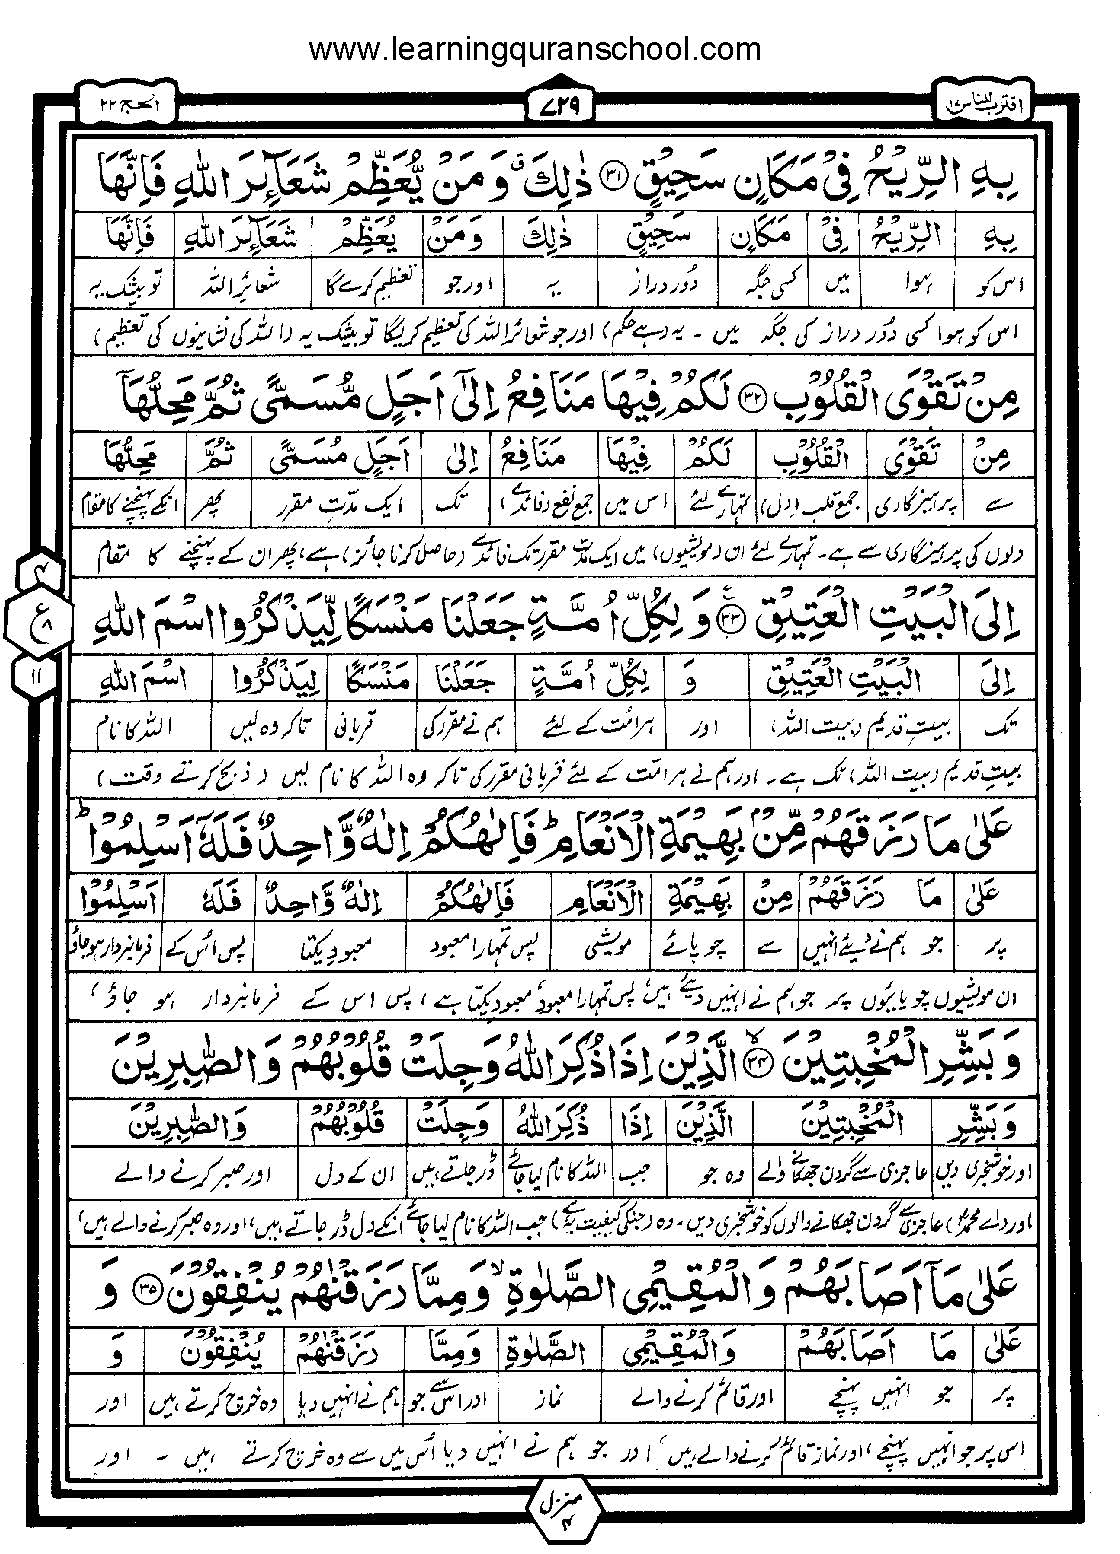 www.learningquranschool.com
الحج ٢٢
٧٢٩
اقترب للناس ١٧
بِهِ الرِّيْحُ فِيْ مَكَانٍ سَحِيْقٍ ۝٣١ ذٰلِكَ ۗ وَمَنْ يُّعَظِّمْ شَعَآئِرَ اللّٰهِ فَاِنَّهَا
بِهِ الرِّيْحُ فِيْ مَكَانٍ سَحِيْقٍ ذٰلِكَ وَمَنْ يُعَظِّمْ شَعَآئِرَ اللّٰهِ فَاِنَّهَا
اس کو ہوا میں کسی جگہ دُور دراز یہ اور جو تعظیم کرے گا شعائرُ اللہ تو بیشک یہ
اس کو ہوا کسی دُور دراز کی جگہ میں ۔ یہ (ہے حکم) اور جو شعائر اللہ کی تعظیم کریگا تو بیشک یہ (اللہ کی نشانیوں کی تعظیم)
مِنْ تَقْوَى الْقُلُوْبِ ۝٣٢ لَكُمْ فِيْهَا مَنَافِعُ اِلٰٓى اَجَلٍ مُّسَمًّى ثُمَّ مَحِلُّهَآ
مِنْ تَقْوَى الْقُلُوْبِ لَكُمْ فِيْهَا مَنَافِعُ اِلٰى اَجَلٍ مُسَمًّى ثُمَّ مَحِلُّهَا
سے پرہیزگاری جمع قلب (دل) تمہارے لئے اس میں جمع نفع (فائدے) تک ایک مدّتِ مقرر پھر انکے پہنچنے کا مقام
دلوں کی پرہیزگاری سے ہے۔ تمہارے لئے ان (مویشیوں) میں ایک مدت مقرر تک فائدے (حاصل کرنا جائز) ہے، پھر ان کے پہنچنے کا مقام
٤
ع ٨
١١
اِلَى الْبَيْتِ الْعَتِيْقِ ۝٣٣ وَلِكُلِّ اُمَّةٍ جَعَلْنَا مَنْسَكًا لِّيَذْكُرُوا اسْمَ اللّٰهِ
اِلَى الْبَيْتِ الْعَتِيْقِ وَ لِكُلِّ اُمَّةٍ جَعَلْنَا مَنْسَكًا لِيَذْكُرُوا اسْمَ اللّٰهِ
تک بیتِ قدیم (بیت اللہ) اور ہر امّت کے لئے ہم نے مقرر کی قربانی تاکہ وہ لیں اللہ کا نام
بیتِ قدیم (بیت اللہ) تک ہے۔ اور ہم نے ہر امت کے لئے قربانی مقرر کی تاکہ وہ اللہ کا نام لیں (ذبح کرتے وقت)
عَلٰى مَا رَزَقَهُمْ مِّنْۢ بَهِيْمَةِ الْاَنْعَامِ ؕ فَاِلٰهُكُمْ اِلٰهٌ وَّاحِدٌ فَلَهٗٓ اَسْلِمُوْا ؕ
عَلٰى مَا رَزَقَهُمْ مِنْ بَهِيْمَةِ الْاَنْعَامِ فَاِلٰهُكُمْ اِلٰهٌ وَّاحِدٌ فَلَهٗ اَسْلِمُوْا
پر جو ہم نے دیئے انہیں سے چوپائے مویشی پس تمہارا معبود معبودِ یکتا پس اس کے فرمانبردار ہو جاؤ
ان مویشیوں چوپایوں پر جو ہم نے انہیں دیئے ہیں، پس تمہارا معبود، معبودِ یکتا ہے، پس اس کے فرمانبردار ہو جاؤ،
وَبَشِّرِ الْمُخْبِتِيْنَ ۝٣٤ الَّذِيْنَ اِذَا ذُكِرَ اللّٰهُ وَجِلَتْ قُلُوْبُهُمْ وَالصّٰبِرِيْنَ
وَبَشِّرِ الْمُخْبِتِيْنَ الَّذِيْنَ اِذَا ذُكِرَ اللّٰهُ وَجِلَتْ قُلُوْبُهُمْ وَالصّٰبِرِيْنَ
اور خوشخبری دیں عاجزی سے گردن جھکانے والے وہ جو جب اللہ کا نام لیا جائے ڈر جاتے ہیں ان کے دل اور صبر کرنے والے
اور (اے محمدؐ) عاجزی سے گردن جھکانے والوں کو خوشخبری دیں۔ وہ (جنکی کیفیت یہ ہے) جب اللہ کا نام لیا جائے انکے دل ڈر جاتے ہیں، اور وہ صبر کرنے والے ہیں،
عَلٰى مَآ اَصَابَهُمْ وَالْمُقِيْمِي الصَّلٰوةِ ۙ وَمِمَّا رَزَقْنٰهُمْ يُنْفِقُوْنَ ۝٣٥ وَ
عَلٰى مَا اَصَابَهُمْ وَالْمُقِيْمِي الصَّلٰوةِ وَمِمَّا رَزَقْنٰهُمْ يُنْفِقُوْنَ وَ
پر جو انہیں پہنچے اور قائم کرنے والے نماز اور اس سے جو ہم نے انہیں دیا وہ خرچ کرتے ہیں اور
اس پر جو انہیں پہنچے، اور نماز قائم کرنے والے ہیں، اور جو ہم نے انہیں دیا اُس میں سے وہ خرچ کرتے ہیں ۔ اور
منزل ٤